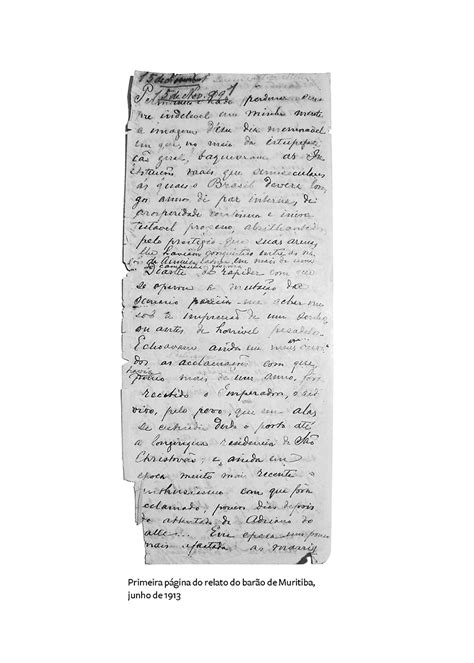 15 de Nov.
e ha de perdurar
indelevel em minha mente
a imagem desse dia memoravel
em que, no meio da estupefac-
ção geral, baquearam as In-
stituições quasi que semiseculares
as quaes o Brasil devera lon-
gos annos de paz interna, de
prosperidade continua e incon-
testavel progresso, abrilhantados
pelo prestigio que suas armas
lhe haviam conquistado
campanha
Diante da rapidez com que
se operou a mutação de
scenario parecia-me achar-me
sob a impressão de um sonho
ou antes de horrivel pesadelo.
Echoavam ainda em meus ouvi-
dos as acclamações com que,
havia
pouco mais de um anno, fora
recebido o Imperador, o redi-
vivo, pelo povo, que em alas
se estendia desde o porto até
a longinqua residencia de São
Christovão; e ainda em
epoca muito mais recente o
enthusiasmo com que fora
acclamado, poucos dias depois
do attentado de Adriano do
Valle... Em epoca um pouco
mais afastada as
Primeira página do relato do barão de Muritiba,
junho de 1913